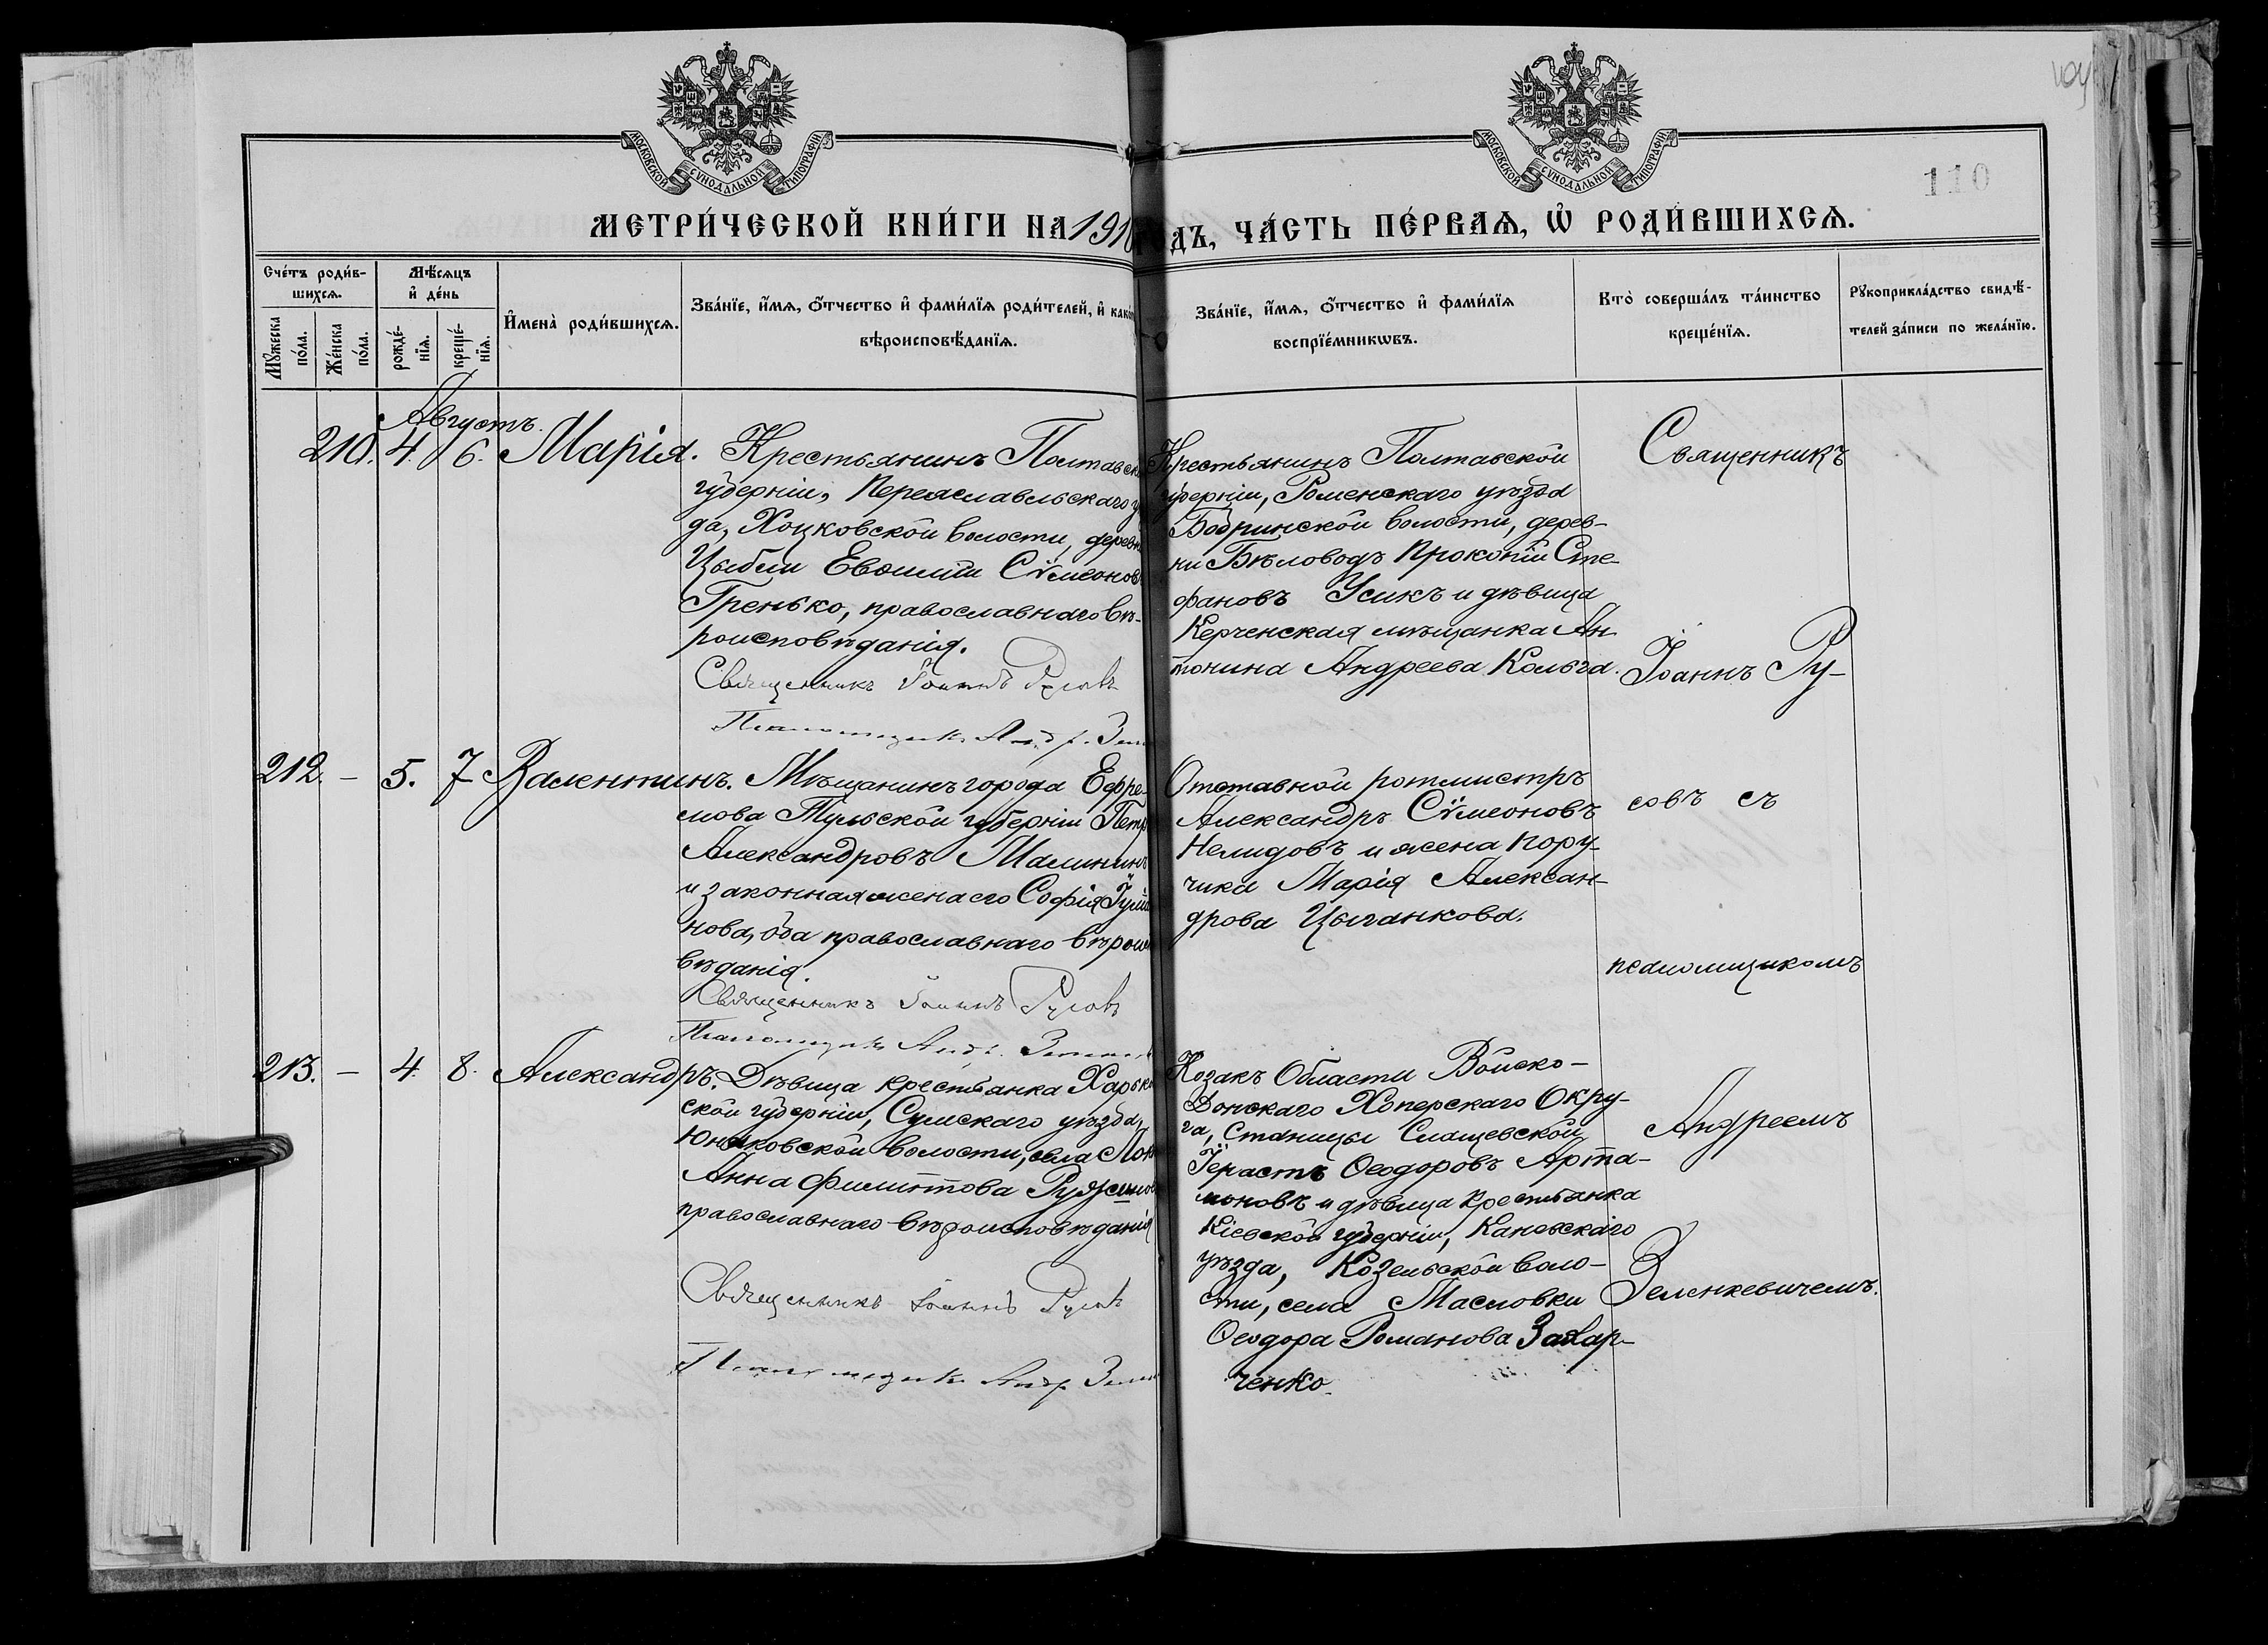 110
МОСКОВСКОЙ СѴНОДАЛЬНОЙ ТИПОГРАФІИ
МОСКОВСКОЙ СѴНОДАЛЬНОЙ ТИПОГРАФІИ
МЕТРИ́ЧЕСКОЙ КНИ́ГИ НА 1910
ДЪ, ЧА́СТЬ ПЕ́РВАѦ, Ѽ РОДИ́ВШИХСѦ.
Сче́тъ роди́в-
шихсѧ.
Мꙋ́жеска по́ла.
Же́нска по́ла.
Мѣ́сѧцъ
и҆ де́нь
рожде́-
нїѧ.
креще́-
нїѧ.
И҆мена̀ роди́вшихсѧ.
Зва́нїе, и҆́мѧ, ѻ҆́тчество и҆ фами́лїѧ роди́телей, и҆ како́
вѣроисповѣ́данїѧ.
Зва́нїе, и҆́мѧ, ѻ҆́тчество и҆ фами́лїѧ
воспрїе́мникѡвъ.
Кто̀ соверша́лъ та́инство
креще́нїѧ.
Рꙋкоприкла́дство свидѣ́-
телей за́писи по жела́нїю.
Августъ.
210. 4. 6. Марія.
Крестьянинъ Полтавск
губерніи, Переяславльскаго у
да, Хоцковской волости, деревн
Цыбли Евѳимій Сѵмеонов
Гренько, православнаго вѣ-
роисповѣданія.
Священникъ Іоаннъ Русовъ
Псаломщикъ Андр. Зелен
Крестьянинъ Полтавской
губерніи, Роменскаго уѣзда
Бобринской волости, дерев-
ни Бѣловодъ Прокопій Сте-
фановъ Усикъ и дѣвица
Керченская мѣщанка Ан-
тонина Андреева Кольга.
Священникъ
Іоаннъ Ру-
212. – 5. 7 Валентинъ.
Мѣщанинъ города Ефре-
мова Тульской губерніи Петр
Александровъ Малининъ
и законная жена его Софія Іулі
нова, оба православнаго вѣроис
вѣданія.
Священникъ Іоаннъ Русовъ
Псаломщикъ Андр. Зелен
Отставной ротмистръ
Александръ Сѵмеоновъ
Нелидовъ и жена пору-
чика Марія Алексан-
дрова Цыганкова.
совъ съ
псаломщикомъ
213. – 4. 8. Александръ.
Дѣвица крестьянка Харько
ской губерніи, Сумскаго уѣзда,
Юнаковской волости, села Лок
Анна Филиппова
православнаго вѣроисповѣданія
Священникъ Іоаннъ Русовъ
Псаломщикъ Андр. Зелен
Козакъ Области Войско-
Донскаго Хоперскаго Окру-
га, Станицы Слащевской
Ѳеодоровъ Арта-
моновъ и дѣвица крестьянка
Кіевской губерніи, Каневскаго
уѣзда, Козельской воло-
сти, села Масловки
Ѳеодора Романова Захар-
ченко.
Андреемъ
Зеленкевичемъ.